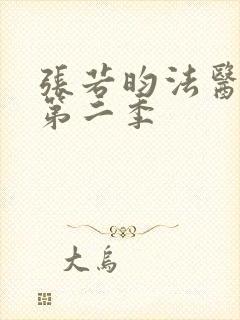 張若昀法醫
第二季
大烏